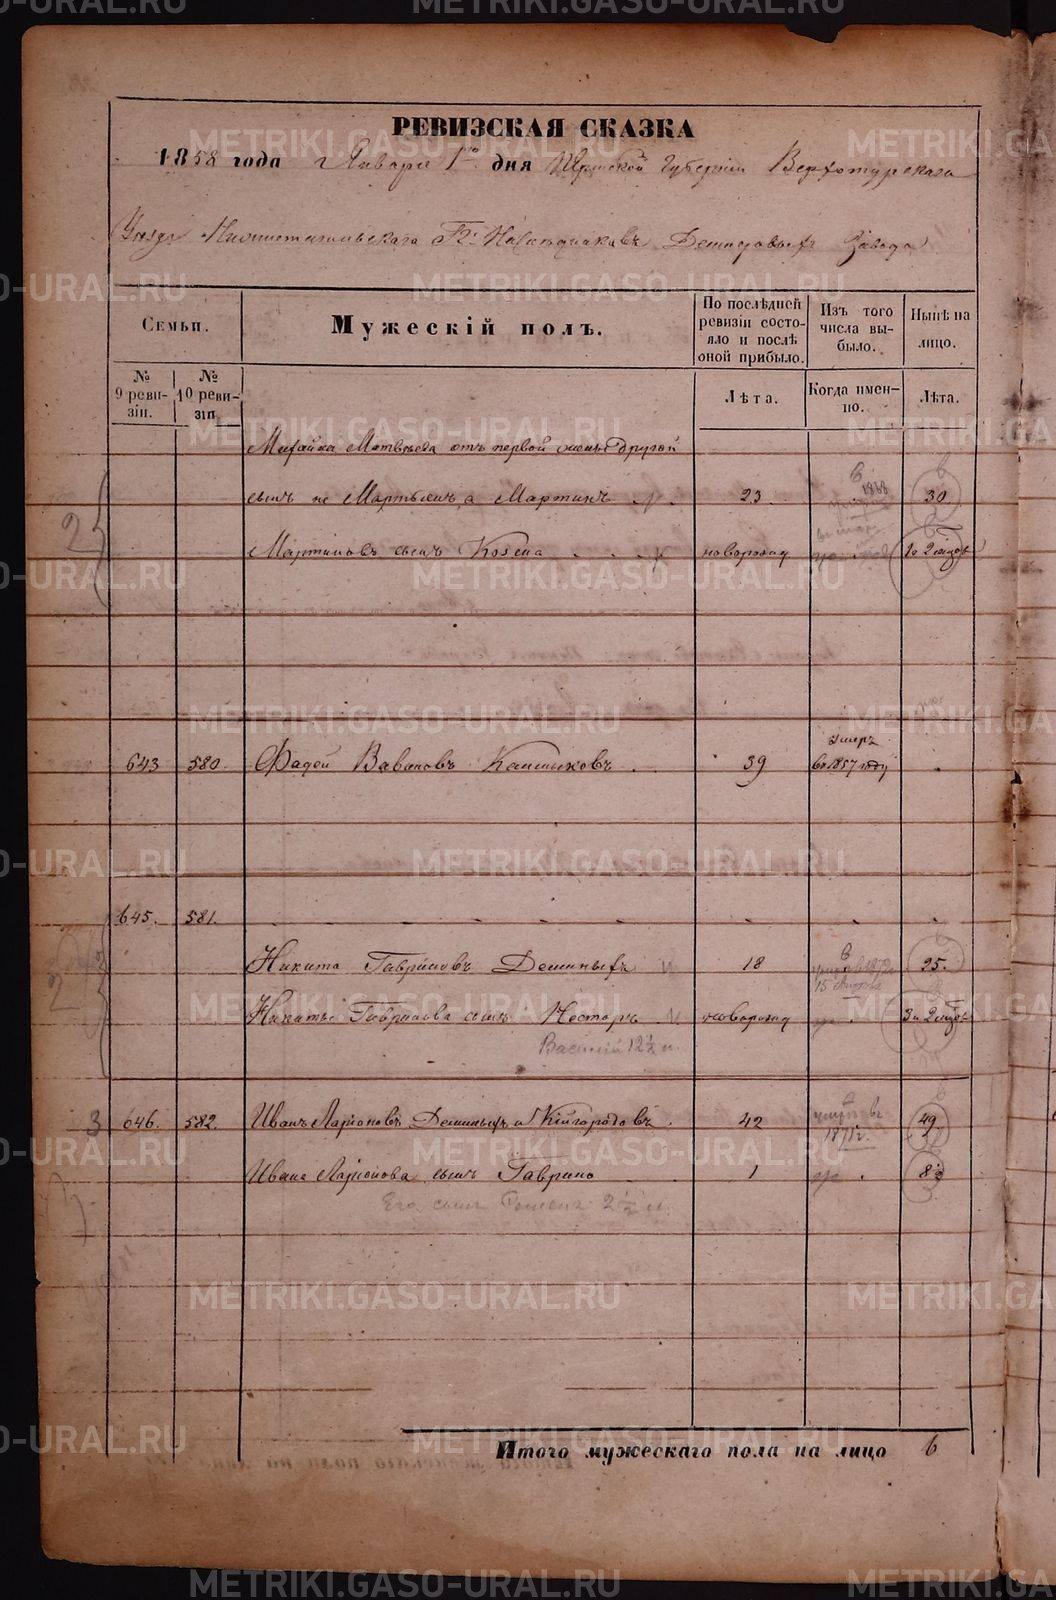 РЕВИЗСКАЯ СКАЗКА
1858 года Января 1го дня Пермской Губернии Верхотурскаго
Уезда Нижнетагильскаго Гг. Наследников Демидовых Завода
Семьи.
Мужескій полъ.
По послѣдней ревизіи состояло и послѣ оной прибыло.
Изъ того числа выбыло.
Нынѣ на лицо.
№ 9 ревизіи.
№ 10 ревизіи.
Лѣта.
Когда именно.
Лѣта.
Матвѣева отъ первой жены другой
сынъ не Мартьянъ, а Мартинъ 23 1868 30
Мартиновъ сынъ новорожд
умеръ
643 580. Фадей Вавиловъ 39 въ 1857 году
645. 581.
Никита Гавриловъ Деминыхъ 18 25.
Никиты Гаврилова сынъ Несторъ новорожд
Василій 12½ л.
3 646. 582. Иванъ Ларіоновъ Деминыхъ и Кайгородовъ 42 1871 г. 49
Ивана Ларіонова сынъ Гаврило 1 8
Его сынъ 2½ л.
Итого мужескаго пола на лицо 6
METRIKI.GASO-URAL.RU